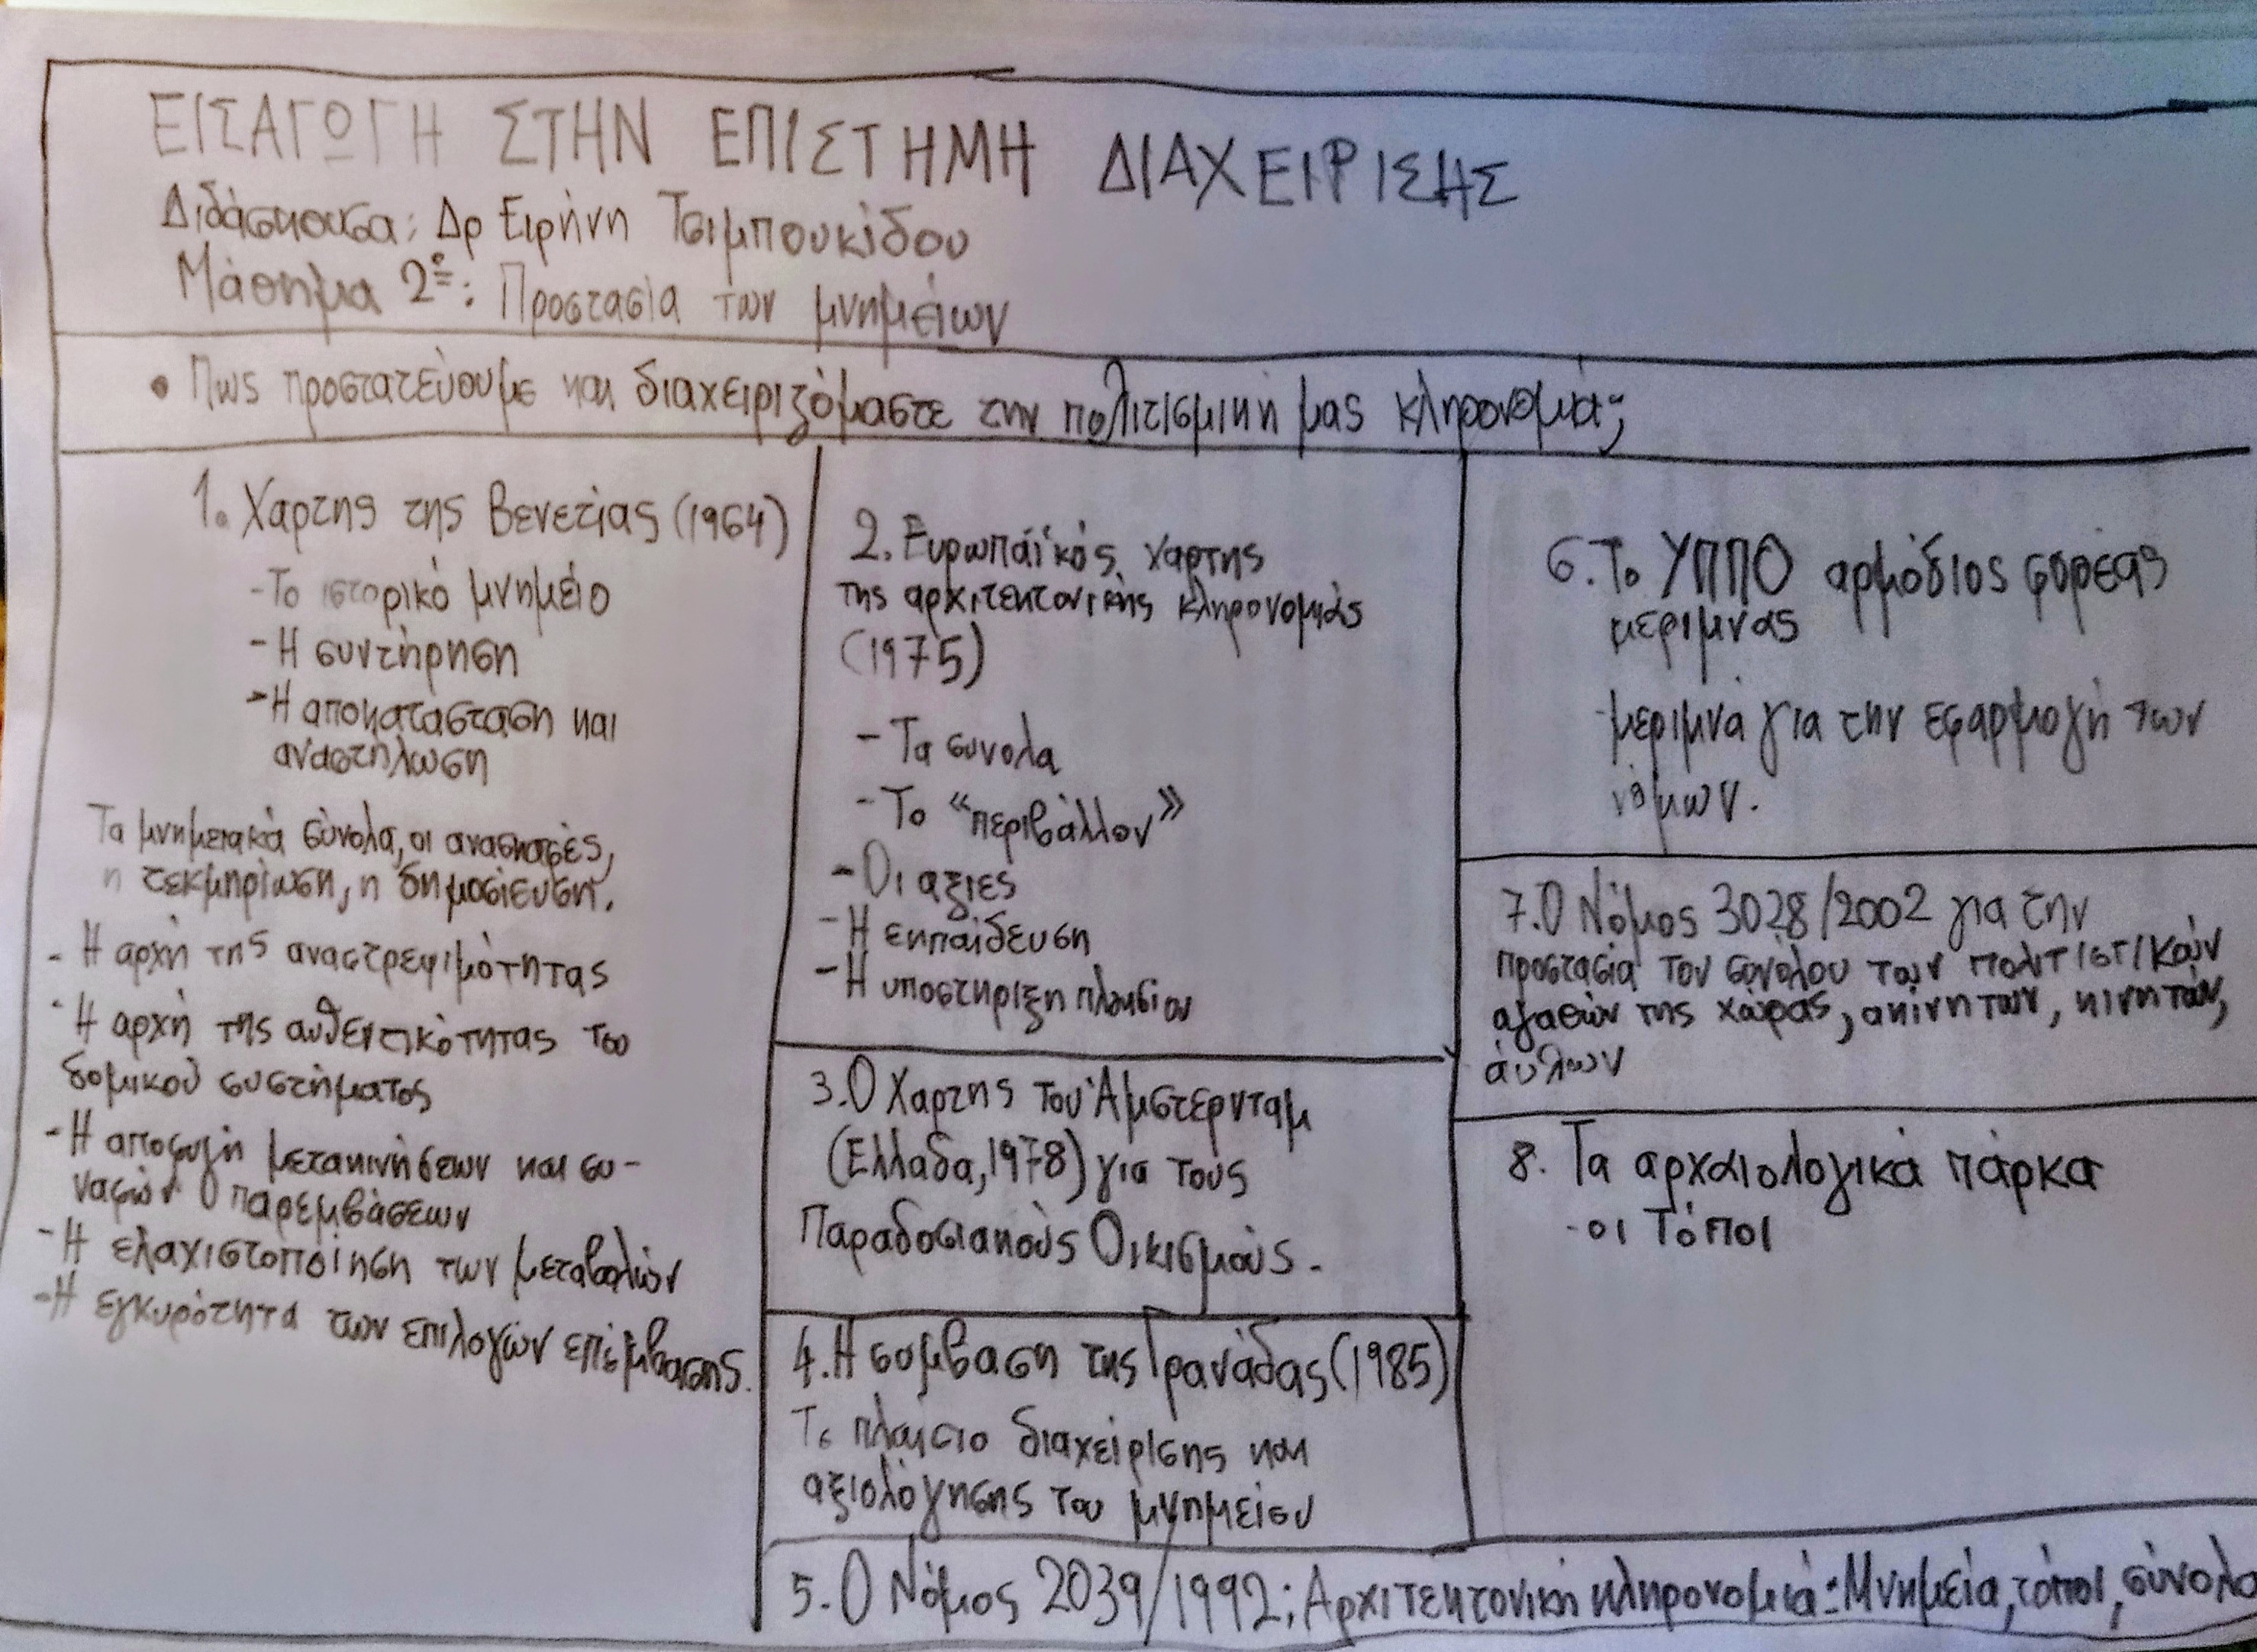 ΕΙΣΑΓΩΓΗ ΣΤΗΝ ΕΠΙΣΤΗΜΗ ΔΙΑΧΕΙΡΙΣΗΣ
Διδάσκουσα: Δρ Ειρήνη Τσιμπουκίδου
Μάθημα 2º: Προστασία των μνημείων
• Πως προστατεύουμε και διαχειριζόμαστε την πολιτισμική μας κληρονομιά;
1. Χαρτης της Βενετίας (1964)
-Το ιστορικό μνημείο
- Η συντήρηση
- Η αποκατασταση και
αναστήλωση
Τα μνημειακά σύνολα, οι ανασκαφές,
η τεκμηρίωση, η δημοσίευση.
- Η αρχή της αναστρεψιμότητας
- Η αρχή της αυθεντικότητας του
δομικού συστήματος
- Η αποφυγή μετακινήσεων και συ-
ναφών παρεμβάσεων
- Η ελαχιστοποίηση των μεταβολών
- Η εγκυρότητα των επιλογών επέμβασης.
2. Ευρωπαϊκός χαρτης
της αρχιτεκτονικής κληρονομιάς
(1975)
- Τα συνολα
- Το «περιβάλλον»
- Οι αξιες
- Η εκπαίδευση
- Η υποστηριξη πλαισίου
3. Ο Χαρτης του Άμστερνταμ
(Ελλαδα, 1978) για τους
Παραδοσιακούς Οικισμούς.
4. Η σύμβαση της Γρανάδας (1985)
Το πλαίσιο διαχείρισης και
αξιολόγησης του μνημείου
5. Ο Νόμος 2039/1992: Αρχιτεκτονική κληρονομιά: Μνημεία, τόποι, σύνολα
6. Το ΥΠΠΟ αρμόδιος φορέας
μεριμνας
-μεριμνά για την εφαρμογή των
νόμων.
7. Ο Νόμος 3028/2002 για την
προστασία του συνόλου των πολιτιστικών
αγαθών της χώρας, ακίνητων, κινητών,
άυλων
8. Τα αρχαιολογικά πάρκα
-οι Τόποι